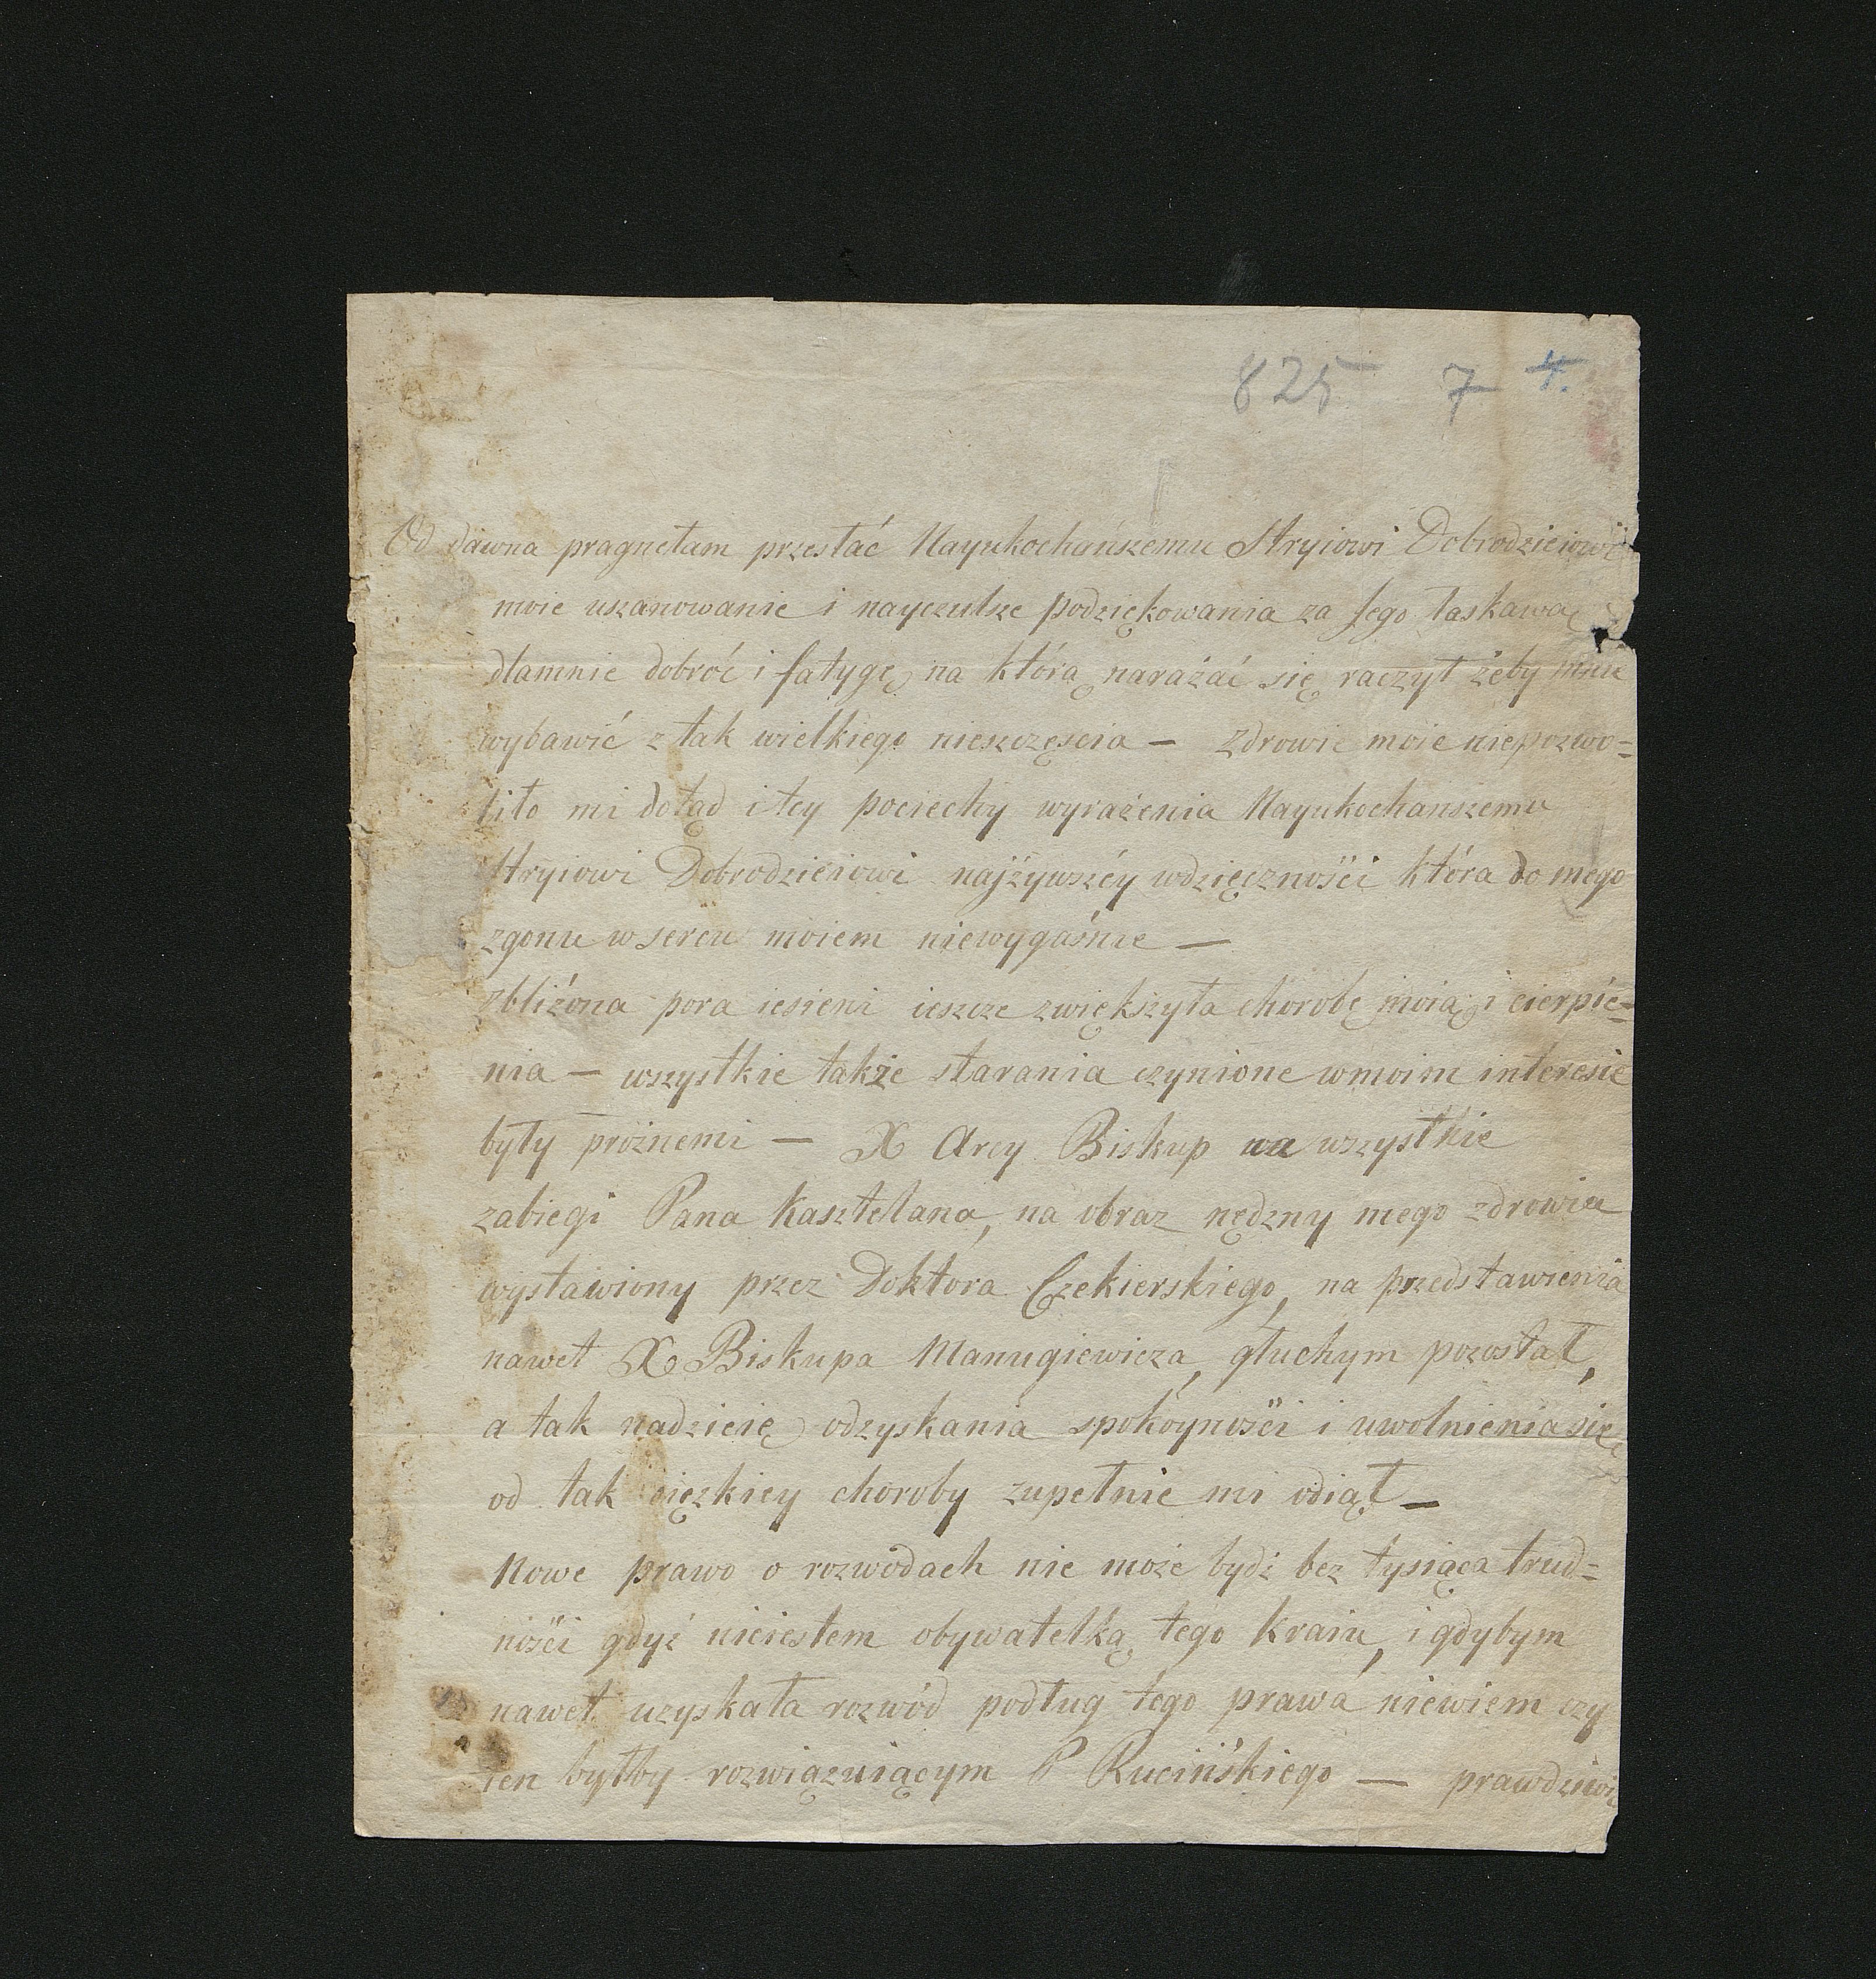 825 7 4.
Od dawna pragnełam przesłać Nayukochanszemu Stryiowi Dobrodzieiowi
moie uszanowanie i nayczulsze podziękowania za Jego łaskawą
dlamnie dobróć i fatygę, na którą narażać się raczył żeby mnie
wybawić z tak wielkiego nieszczęscia — zdrowie moie niepozwo=
liło mi dotąd i tey pociechy wyrażenia Nayukochanszemu
Stryiowi Dobrodzieiowi najżywszéy wdzięcznosći która do mego
zgonu w sercu moiem niewygaśnie —
zbliżona pora iesieni ieszcze zwiększyła chorobę moią i cierpie=
nia — wszystkie także starania czynione wmoim interesie
były próżnemi — X Arcy Biskup na wszystkie
zabiegi Pana Kasztelana, na obraz nędzny mego zdrowia
wystawiony przez Doktora Czekierskiego, na przedstawienia
nawet X Biskupa Manugiewicza, głuchym pozostał,
a tak nadzieię odzyskania spokoynosći i uwolnienia się
od tak cięzkiey choroby zupełnie mi odiął —
Nowe prawo o rozwodach nie może bydź bez tysiąca trud=
nosći gdyż nieiestem obywatelką tego kraiu, i gdybym
nawet uzyskała rozwód podług tego prawa niewiem czy
ten byłby rozwiązuiącym P Rucińskiego — prawdziwie